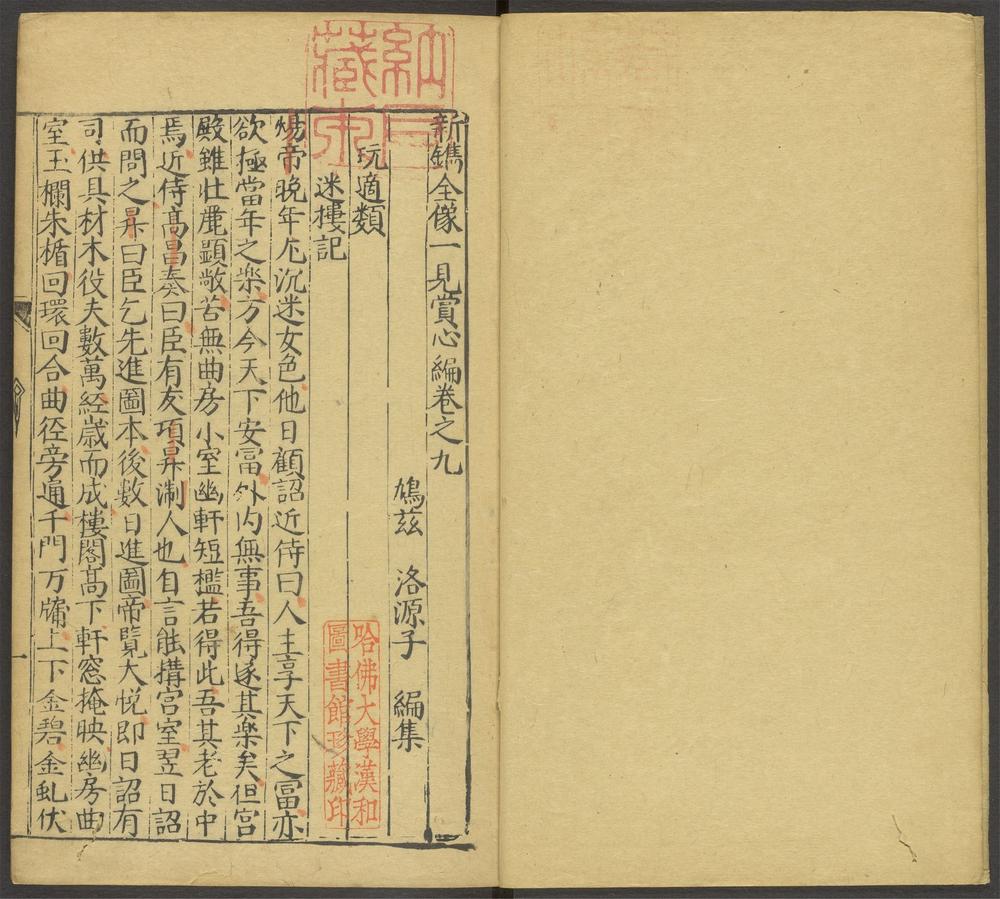 新鐫全像一見賞心編卷之九
鳩茲 洛源子 編集
玩適類
迷樓記
煬帝晚年尤沉迷女色他日顧詔近侍曰人主享天下之富亦
欲極當年之樂方今天下安富外内無事吾得遂其樂矣但宫
殿雖壯麗顯敞苦無曲房小室幽軒短檻若得此吾其老於中
焉近侍高昌奏曰臣有友項昇淛人也自言能搆宫室翌日詔
而問之昇曰臣乞先進圖本後數日進圖帝覽大悦即日詔有
司供具材木役夫數萬經歲而成樓閣高下軒窓掩映幽房曲
室玉欄朱楯回環回合曲徑旁通千門万牖上下金碧金虬伏
一
哈佛大學漢和
圖書館珍藏印